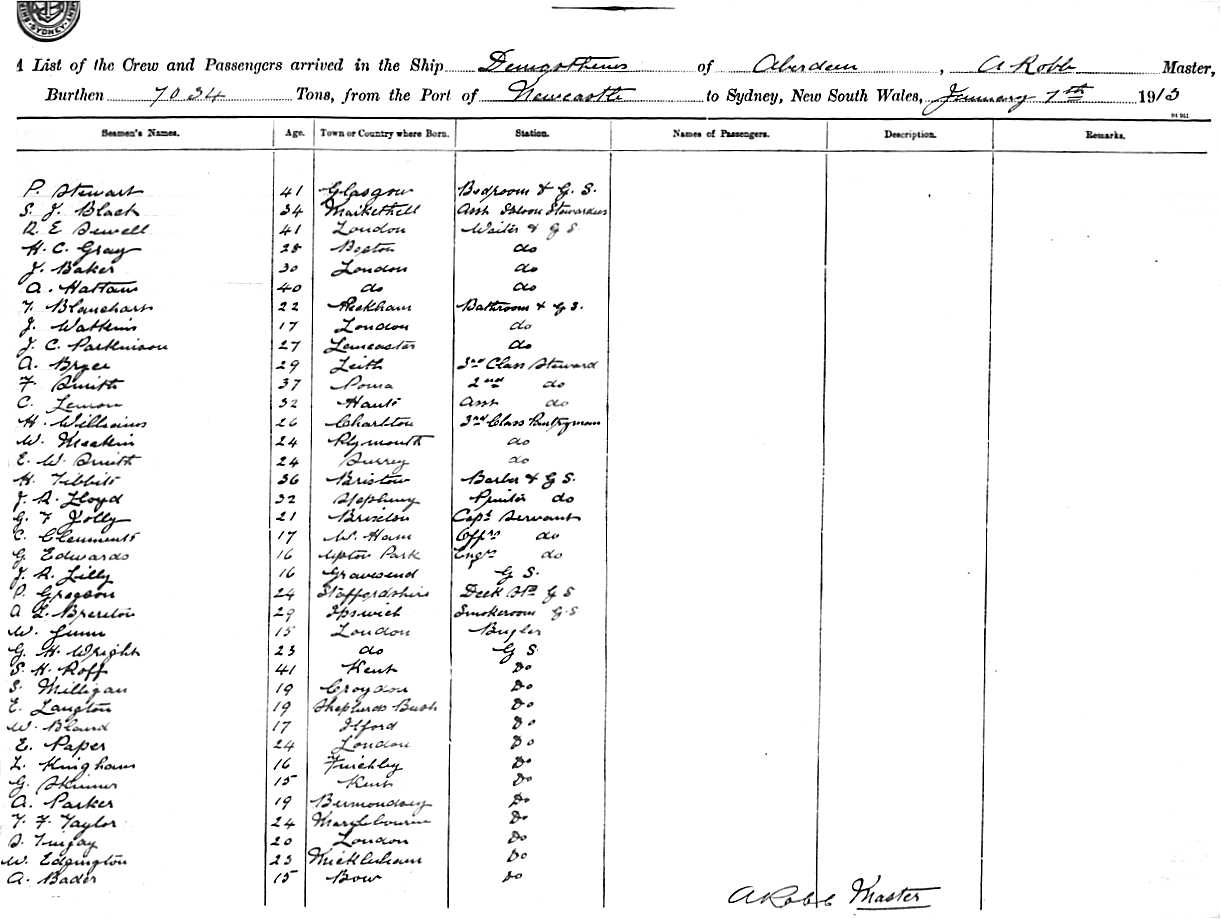 SYDNEY
A List of the Crew and Passengers arrived in the Ship Demosthenes of Aberdeen, A Robb Master,
Burthen 7034 Tons, from the Port of Newcastle to Sydney, New South Wales, January 7th 1913
Seamen's Names. Age. Town or Country where Born. Station. Names of Passengers. Description. Remarks.
P. Stewart 41 Glasgow Bedroom & G. S.
S. J. Black 34 Markethill Asst Saloon Stewardess
R. E Sewell 41 London Waiter & G S
H. C. Gray 28 Boston do
J. Baker 30 London do
A. Hattam 40 do do
T. Blanchard 22 Peckham Bathroom & G S.
J. Watkins 17 London do
J. C. Parkinson 27 Lancaster do
A. Bryce 29 Leith 3rd Class Steward
F. Smith 37 2nd do
C. Lemon 32 Hants Asst do
H. Williams 26 Charlton 3rd Class Pantryman
W. Meakin 24 Plymouth do
E. W. Smith 24 Surrey do
H. Tibbitt 36 Bristow Barber & G S.
J. R. Lloyd 32 Stephney Printer do
G. F Jolly 21 Brixton Capt Servant
C. Clements 17 W. Ham Offrs do
G. Edwards 16 Upton Park Engrs do
J. R. Lilly 16 Gravesend G S.
P. Gregson 24 Staffordshire Deck Std G S
A L. Brereton 29 Ipswich Smokeroom G.S
W. Gunn 15 London Bugler
G. H. Wright 23 do G S.
S. H. Roff 41 Kent Do
S. Milligan 19 Croydon Do
E. Langton 19 Shepherds Bush Do
W. Bland 17 Ilford Do
E. Paper 24 London Do
L. Kingham 16 Finchley Do
G. Skinner 15 Kent Do
A. Parker 19 Bermondsey Do
T. F. Taylor 24 Marylbourne Do
20 London Do
W. Edgington 23 Mickleham Do
A. Bader 15 Bow do
A Robb Master